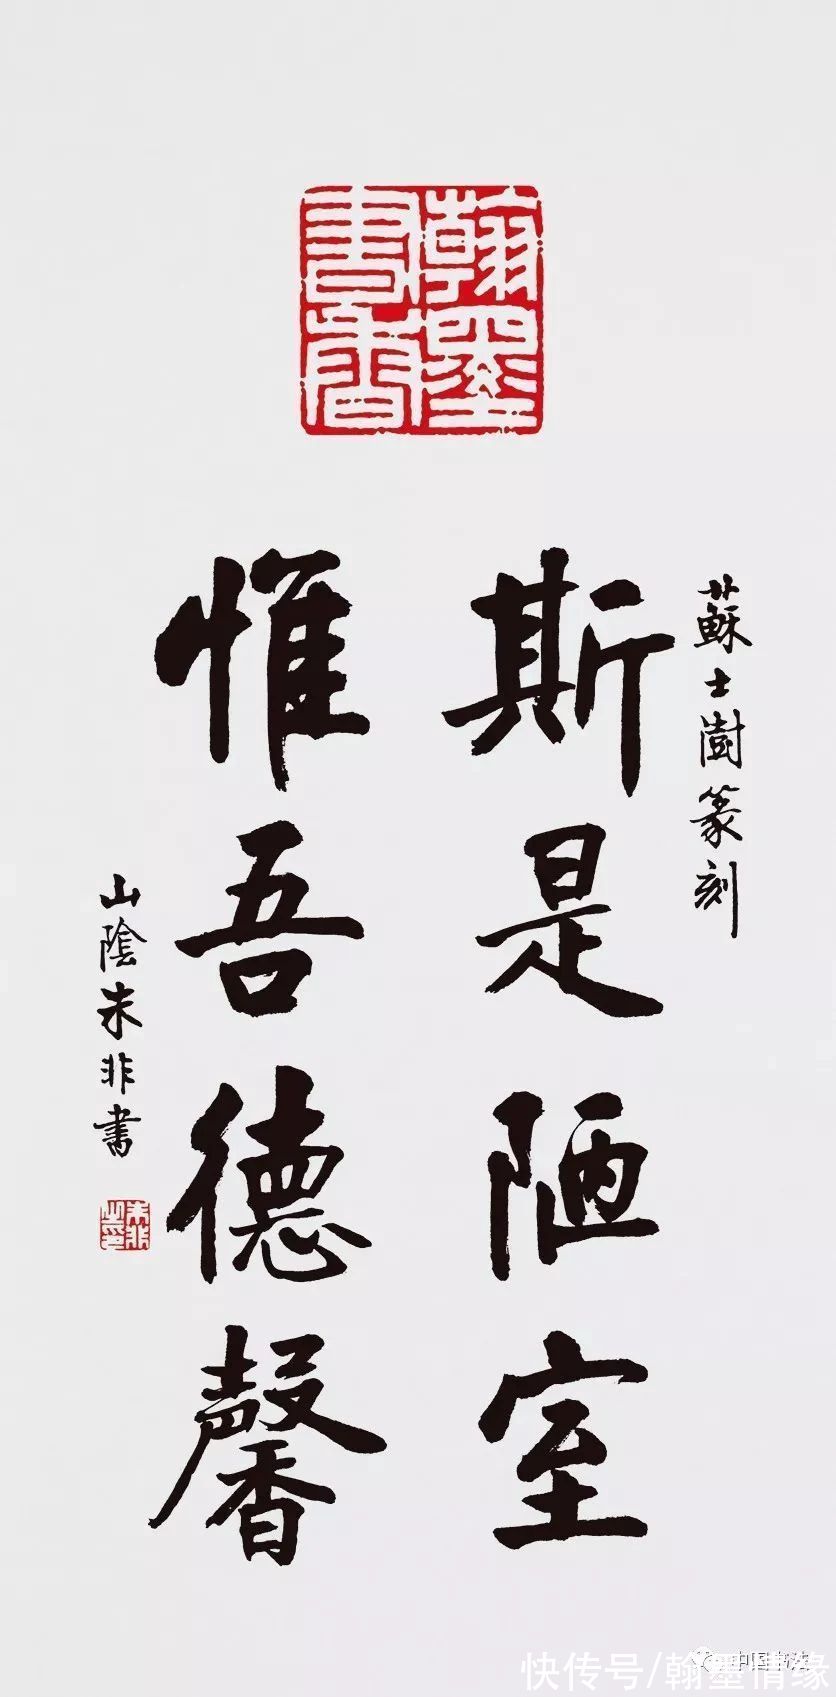 翰墨
書香
蘇士澍篆刻
斯是陋室
惟吾德馨
山陰朱非書
朱非
之印
中国书法
快传号/翰墨情缘